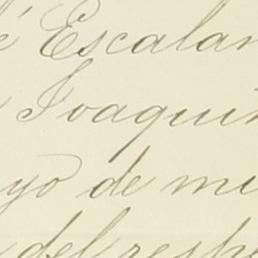 é Escalan
Joaquin
yo de mi
del respe